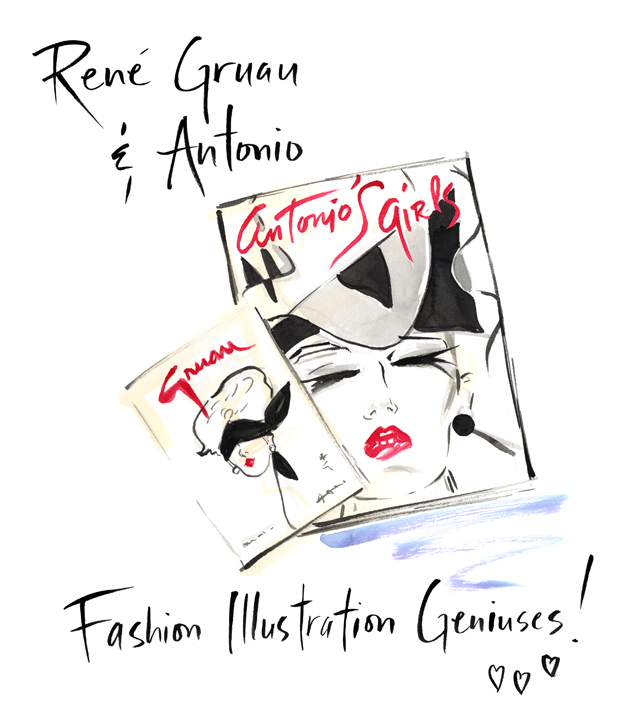 René Gruau
& Antonio
Antonio's Girls
Gruau
Fashion Illustration Geniuses!